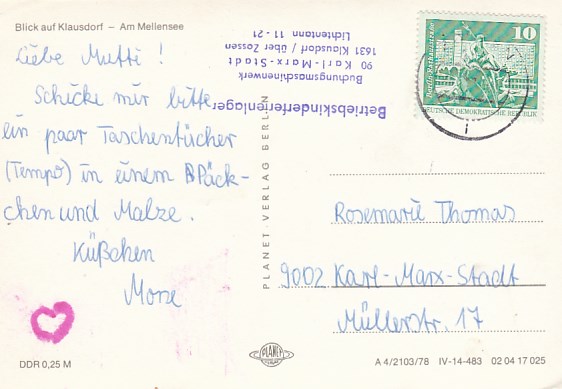 Blick auf Klausdorf – Am Mellensee
Liebe Mutti !
Schicke mir bitte
ein paar Taschentücher
(Tempo) in einem Päck-
chen und Malze.
Küßchen
DDR 0,25 M
Betriebskinderferienlager
Buchungsmaschinenwerk
90 Karl-Marx-Stadt
1631 Klausdorf / über Zossen
Lichtentann 11-21
PLANET-VERLAG BERLIN
10
Berlin · Rathausstraße
DEUTSCHE DEMOKRATISCHE REPUBLIK
Rosemarie Thomas
9002 Karl-Marx-Stadt
Müllerstr. 17
PLANET
A 4/2103/78 IV-14-483 02 04 17 025